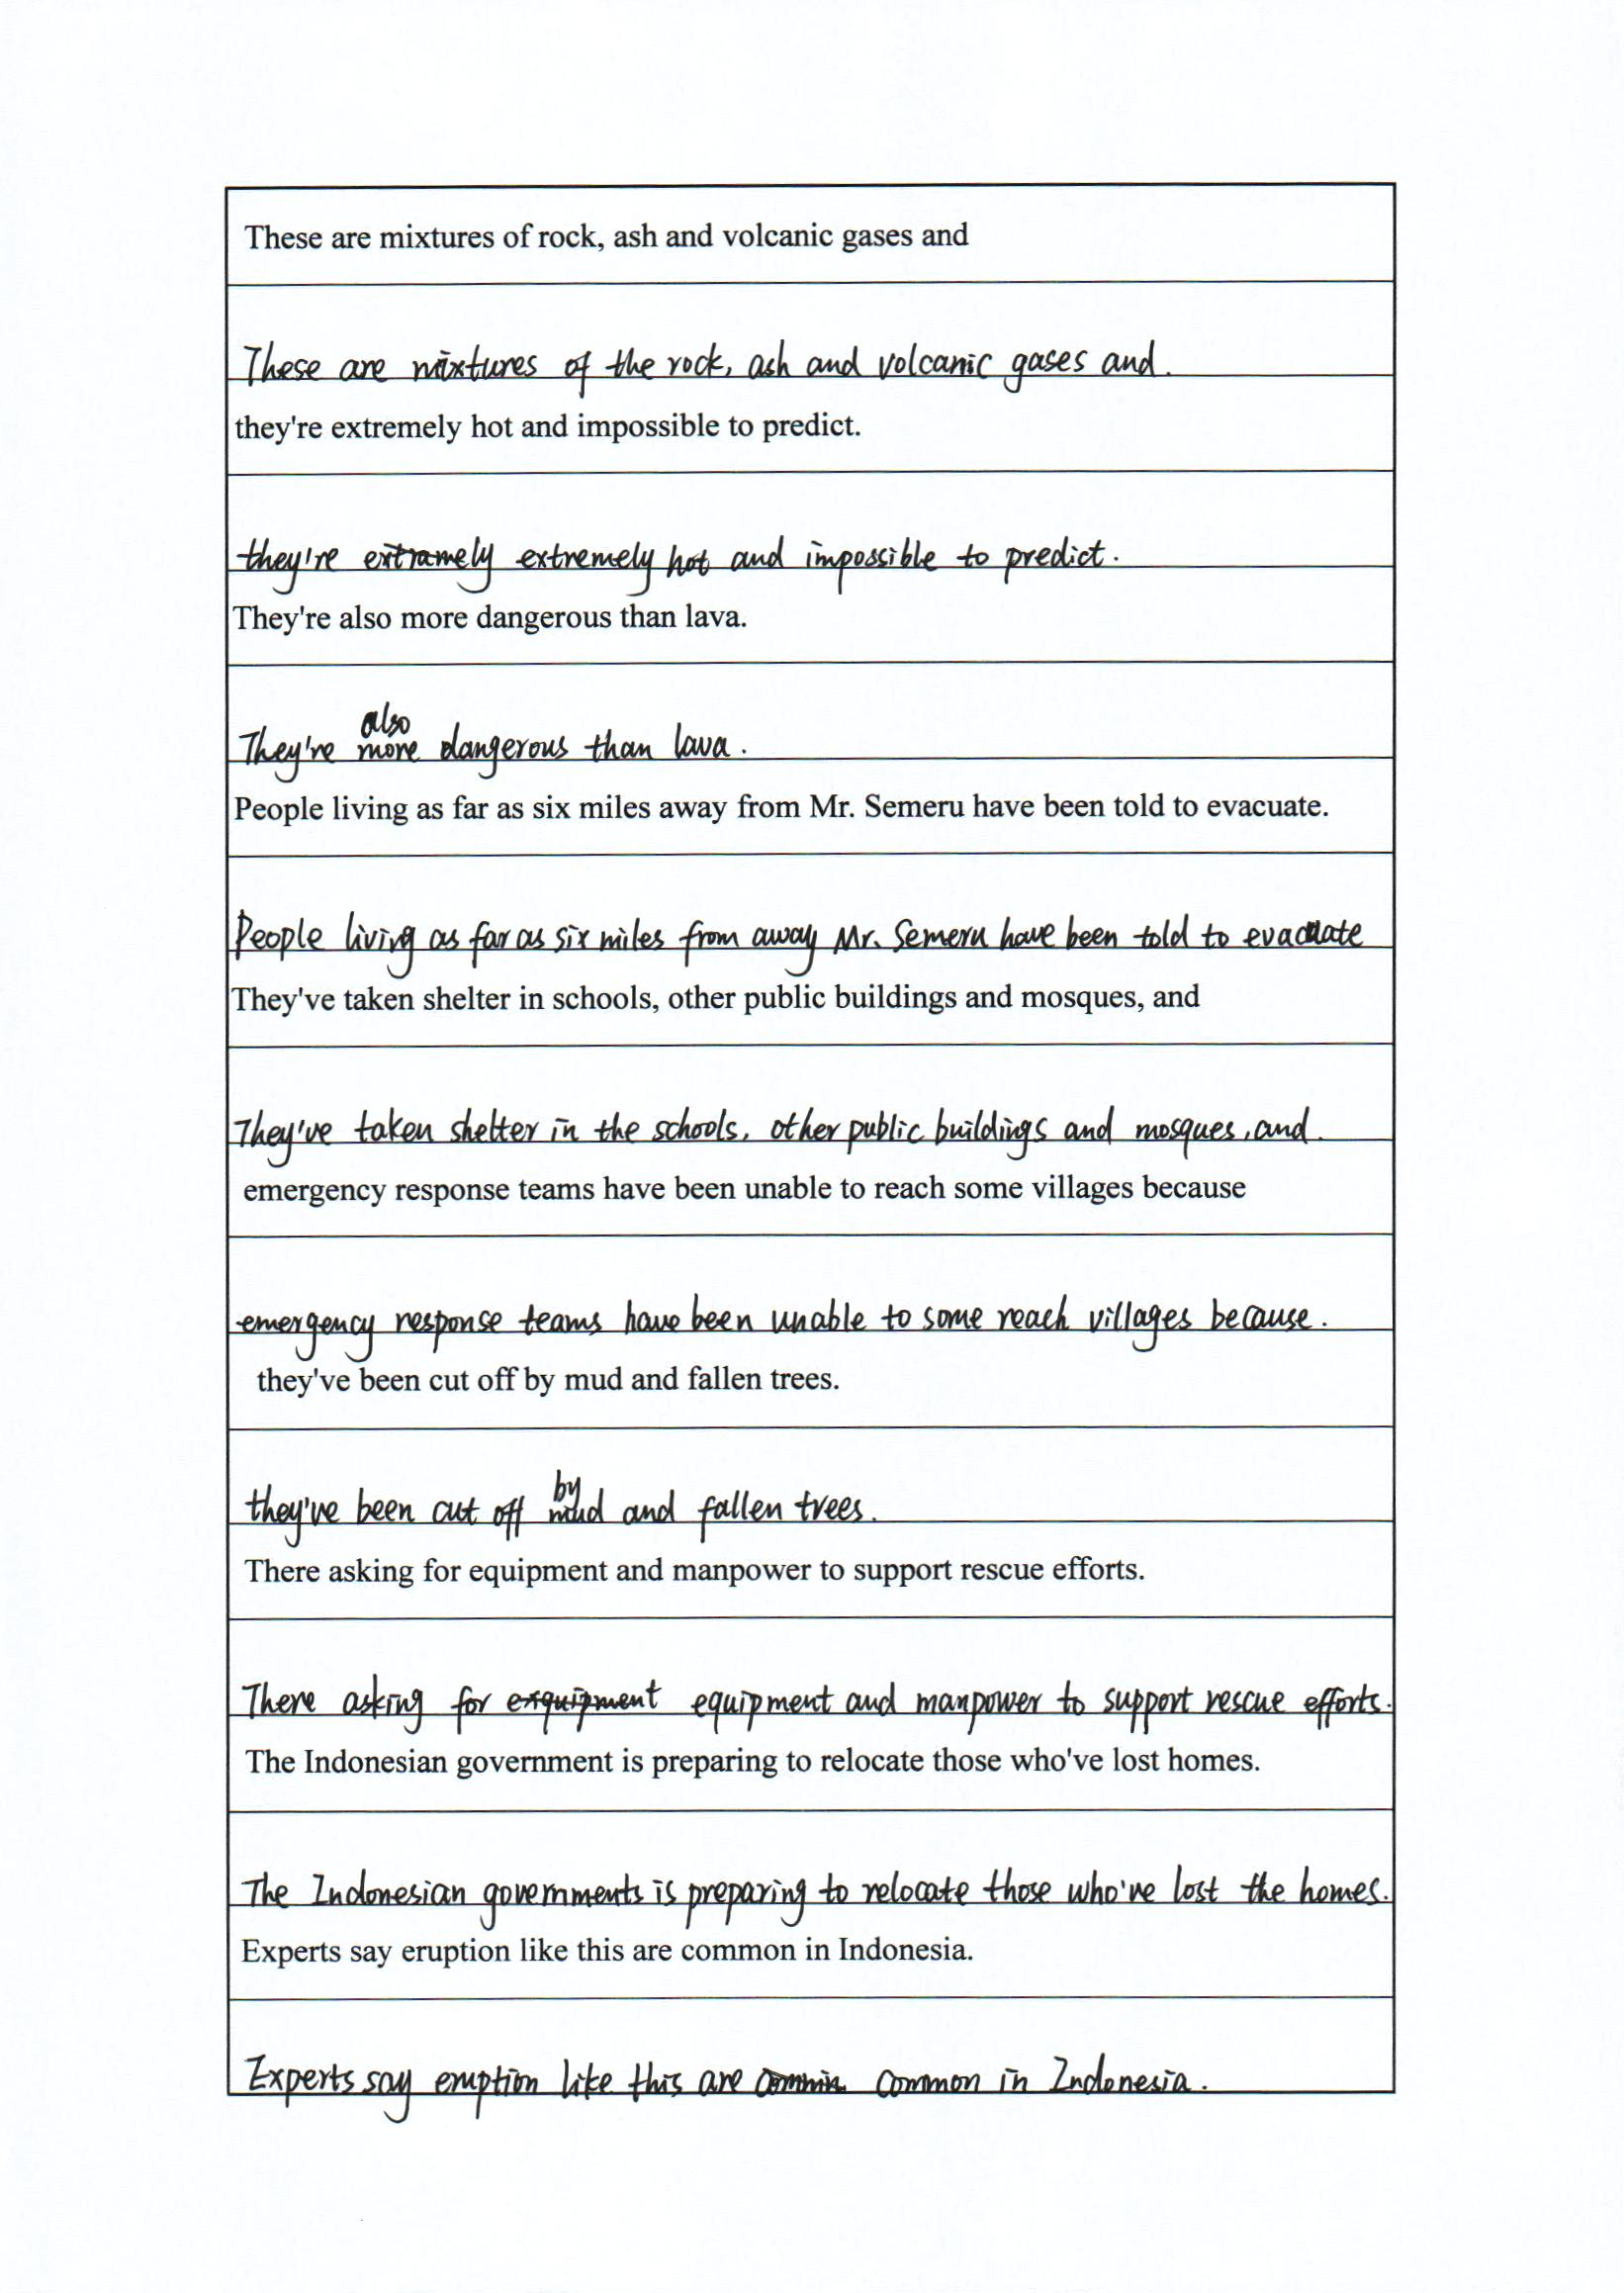 These are mixtures of rock, ash and volcanic gases and
These are mixtures of the rock, ash and volcanic gases and.
they're extremely hot and impossible to predict.
they're extramely extremely hot and impossible to predict.
They're also more dangerous than lava.
They're also more dangerous than lava.
People living as far as six miles away from Mr. Semeru have been told to evacuate.
People living as far as six miles from away Mr. Semeru have been told to evacuate
They've taken shelter in schools, other public buildings and mosques, and
They've taken shelter in the schools, other public buildings and mosques, and.
emergency response teams have been unable to reach some villages because
emergency response teams have been unable to some reach villages because.
they've been cut off by mud and fallen trees.
they've been cut off by mud and fallen trees.
There asking for equipment and manpower to support rescue efforts.
There asking for exquipment equipment and manpower to support rescue efforts.
The Indonesian government is preparing to relocate those who've lost homes.
The Indonesian governments is preparing to relocate those who've lost the homes.
Experts say eruption like this are common in Indonesia.
Experts say eruption like this are common in Indonesia.